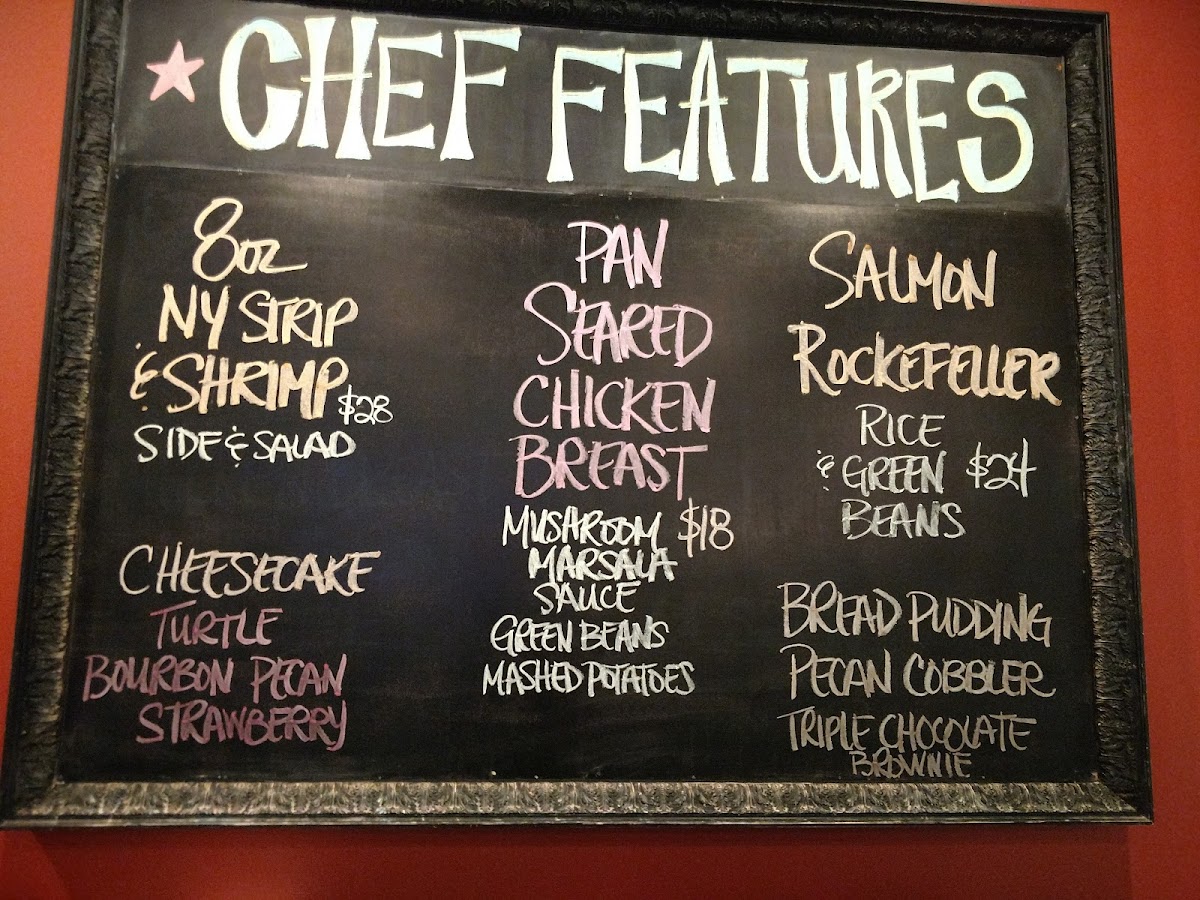 CHEF FEATURES
8oz
NY STRIP
& SHRIMP $28
SIDE & SALAD
CHEESECAKE
TURTLE
BOURBON PECAN
STRAWBERRY
PAN
SEARED
CHICKEN
BREAST
MUSHROOM $18
MARSALA
SAUCE
GREEN BEANS
MASHED POTATOES
SALMON
ROCKEFELLER
RICE
& GREEN $24
BEANS
BREAD PUDDING
PECAN COBBLER
TRIPLE CHOCOLATE
BROWNIE